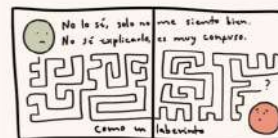 No lo sé, solo no me siento bien.
No sé explicarlo, es muy confuso.
?
como un laberinto